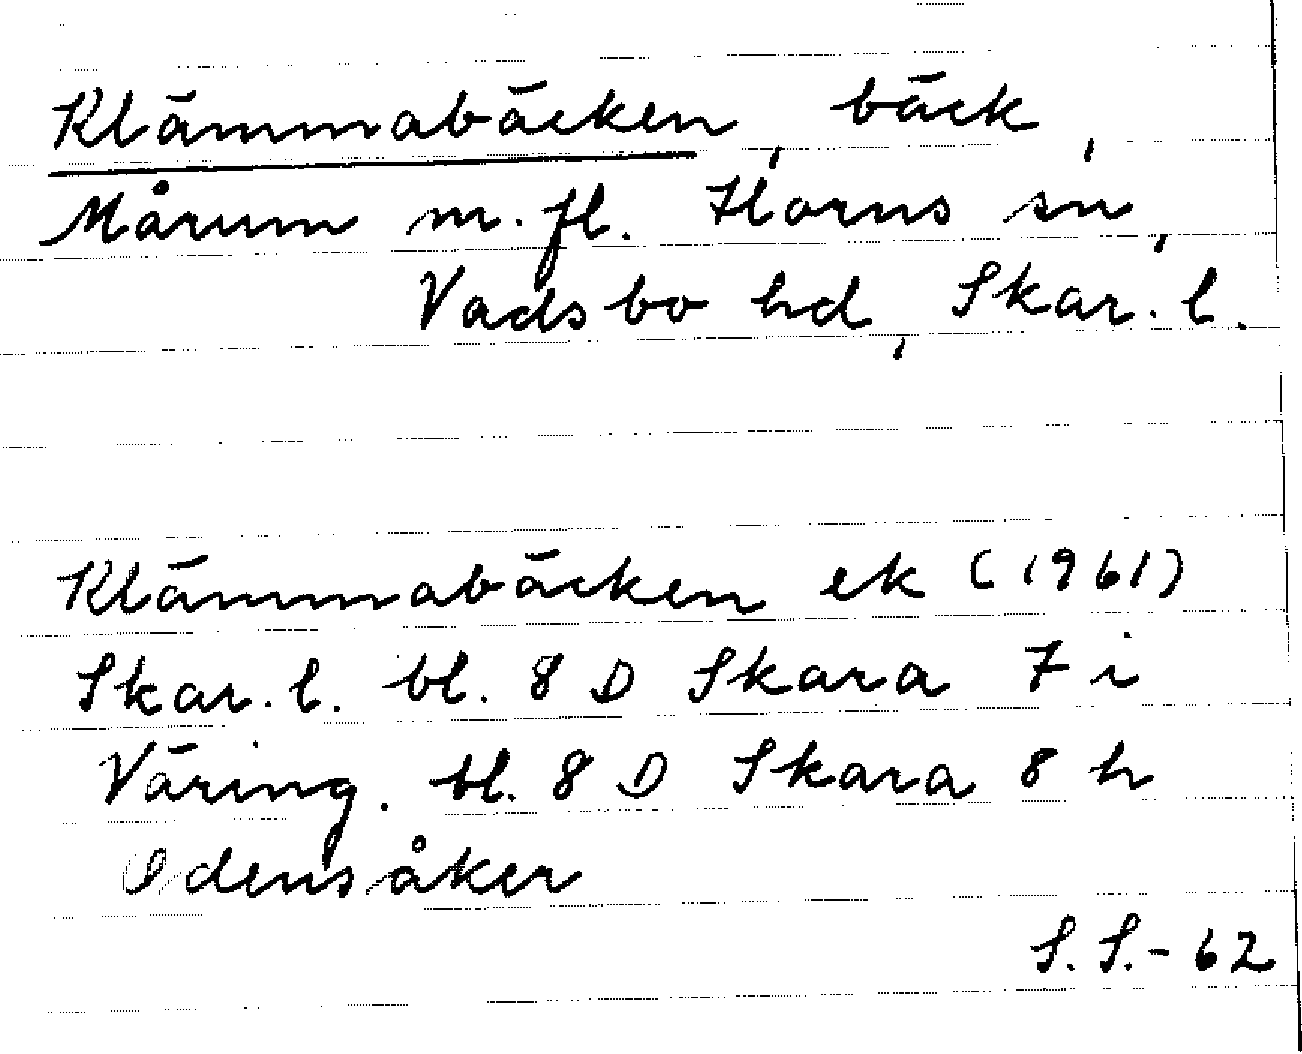 Klämmabäcken, bäck,
Mårum m.fl. Horns sn,
Vadsbo hd, Skar. l.
Klämmabäcken ek (1961)
Skar. l. bl. 8 D Skara 7 i
Väring. bl. 8 D Skara 8 h
Odensåker
S. S. - 62